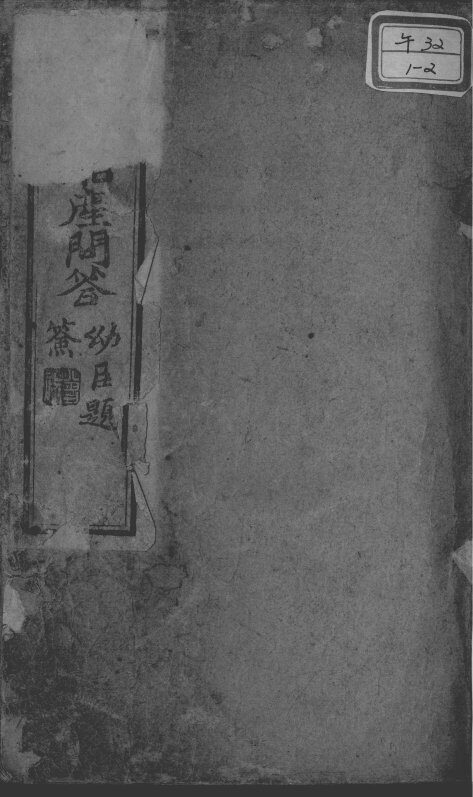 午 32
1-2
產問答
幼臣題
籤